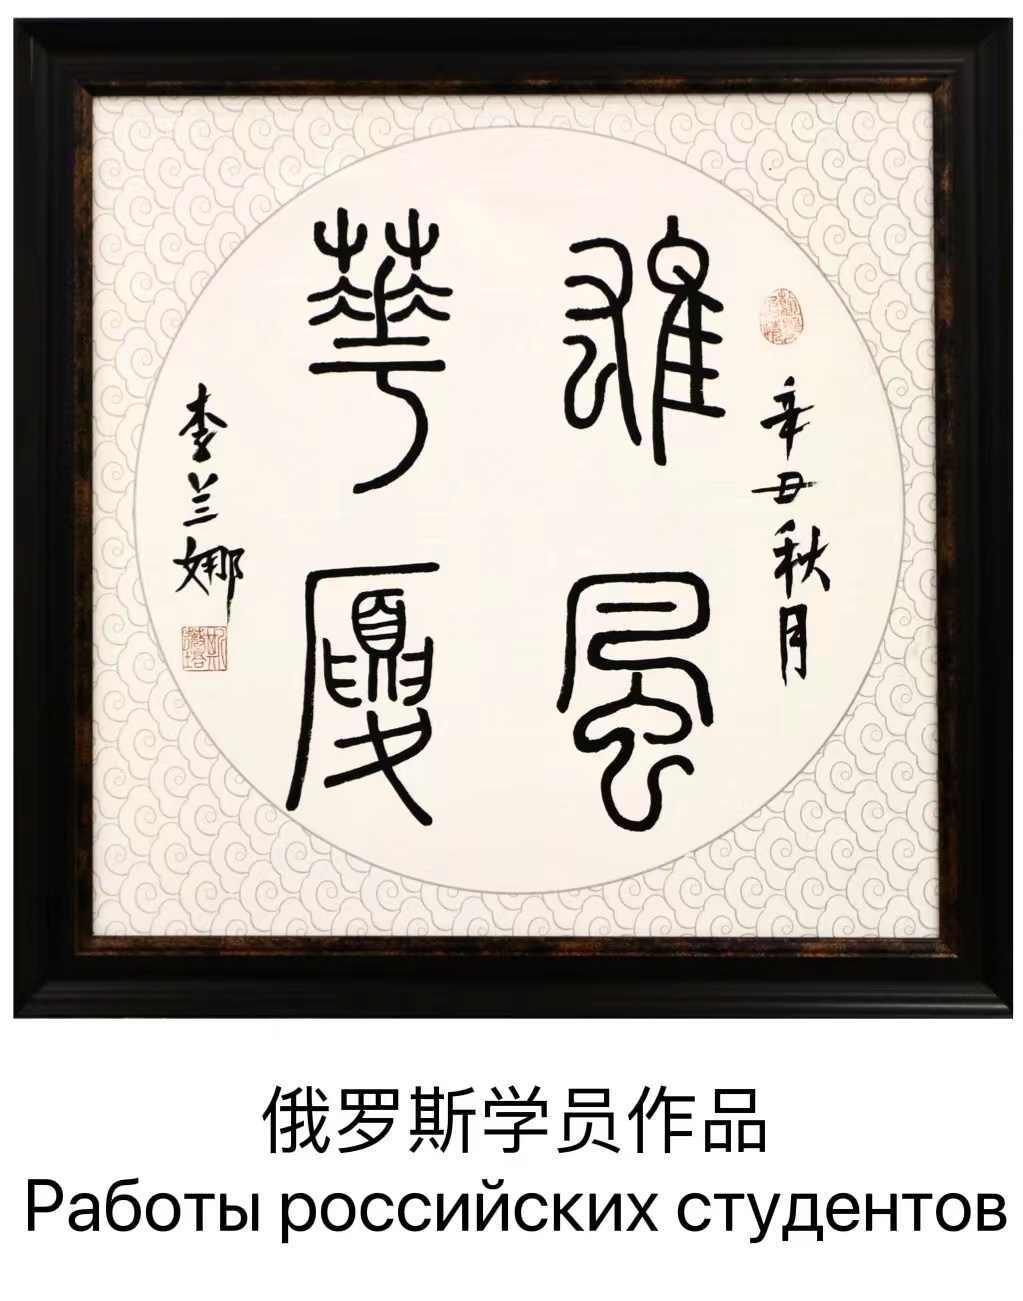 雄風
華厦
辛丑秋月
李兰娜
俄罗斯学员作品
Работы российских студентов